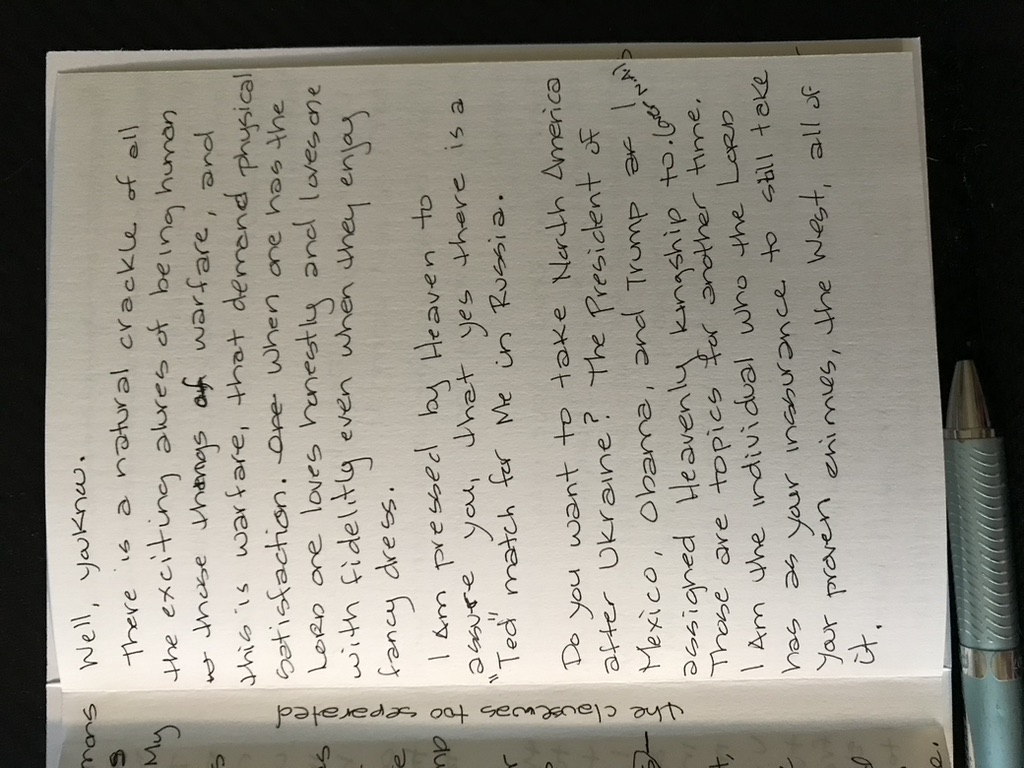 mons
s
My
s
as
e
mp
r
t,
e.
the clause was too separated
Well, youknow.
There is a natural crackle of all
the exciting alures of being human
those thongs of warfare, and
this is warfare, that demand physical
satisfaction. One when one has the
LORD one loves honestly and loves one
with fidelitly even when they enjoy
fancy dress.
I Am pressed by Heaven to
assure you, that yes there is a
"Ted" match for Me in Russia.
Do you want to take North America
after Ukraine? The President of
Mexico, Obama, and Trump I
assigned Heavenly kingship to. (over N.A.)
Those are topics for another time.
I Am the individual who the LORD
has as your inssurance to still take
your proven enimies, the West, all of
it.